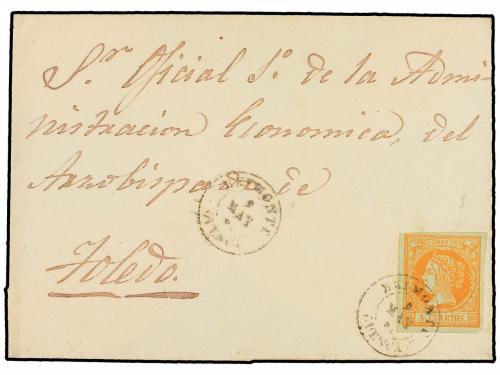 Sr. Oficial 1º de la Admi-
nistracion Economica, del
Arzobispado de
Toledo.
MAY
MAY
CUARTOS